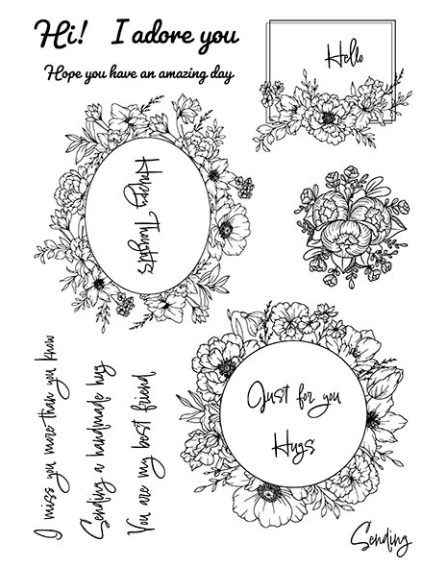 Hi!
I adore you
Hope you have an amazing day
Hello
Happy Thoughts
I miss you more than you know
Sending a handmade hug
You are my best friend
Just for you
Hugs
Sending